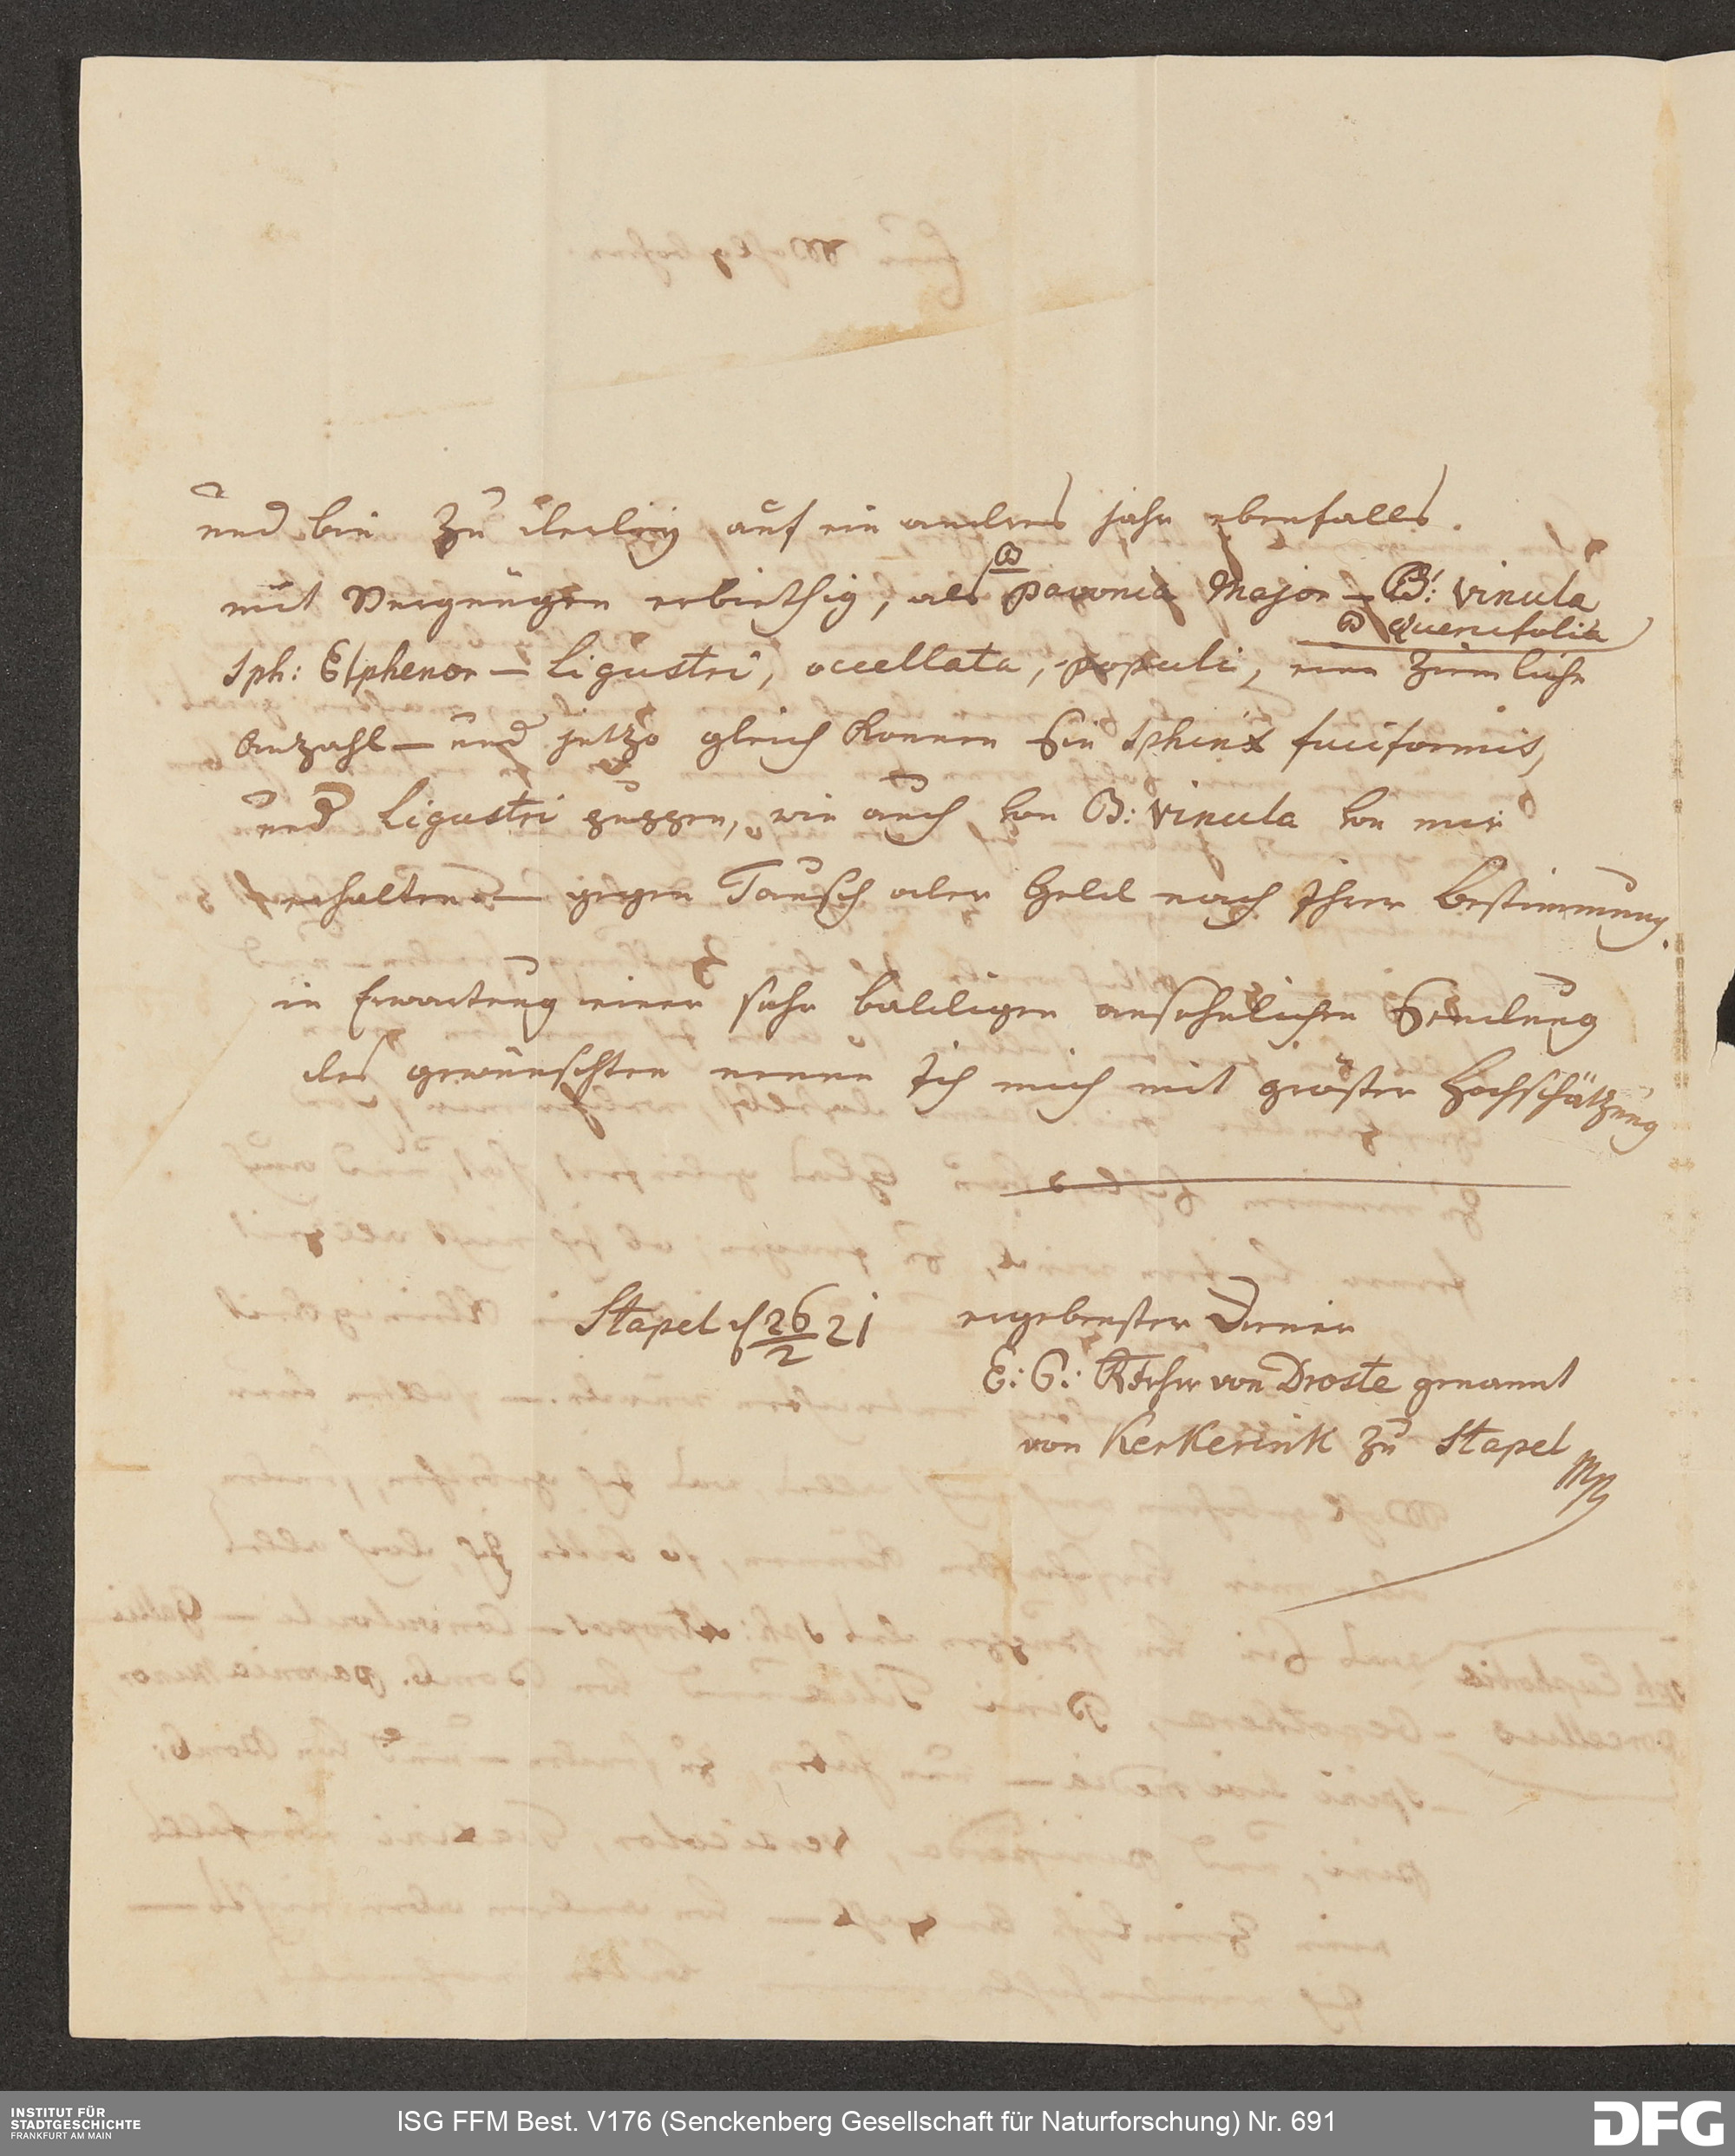 und bin zu derley auf ein anders jahr ebenfalls.
mit Vergnügen erbiethig, als B pavonia Major – B: vinula
B quercifolia
Sph: Elphenor – Ligustri, occellata, populi, eine ziemliche
Anzahl – und jetzo gleich können Sie Sphinx fuciformis,
und Ligustri puppen, wie auch von B: vinula von mir
erhalten – gegen Tausch oder Geld nach Ihrer Bestimmung.
in Erwartung einer sehr baldigen ansehnlichen Sendung
des gewünschten nenne Ich mich mit gröster Hochschätzung
Stapel d 26/2 21
ergebenster Diener
E: G: Frhr von Droste genannt
von Kerkerink zu Stapel
mp
INSTITUT FÜR
STADTGESCHICHTE
FRANKFURT AM MAIN
ISG FFM Best. V176 (Senckenberg Gesellschaft für Naturforschung) Nr. 691
DFG